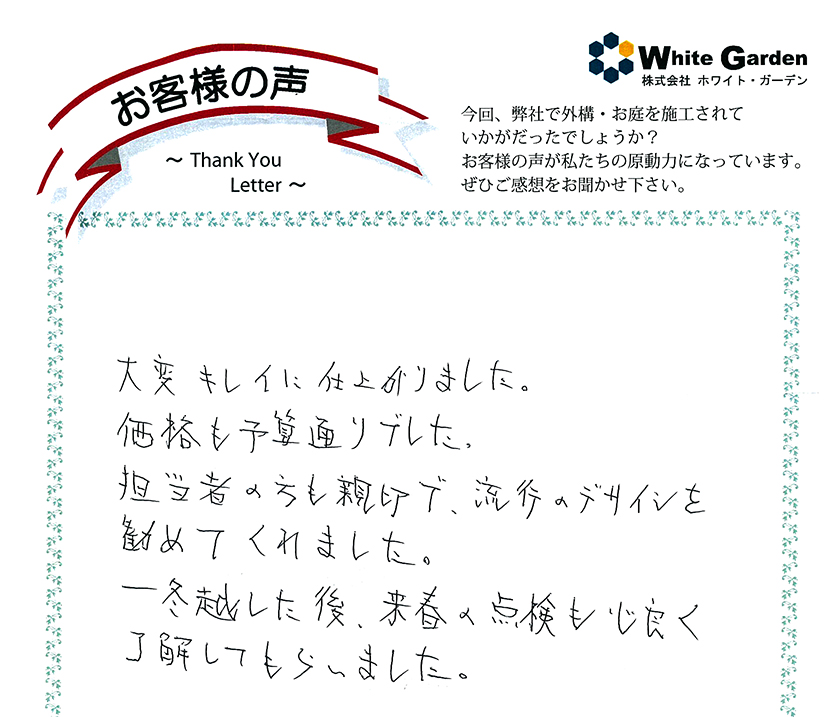 お客様の声
～ Thank You
Letter ～
White Garden
株式会社 ホワイト・ガーデン
今回、弊社で外構・お庭を施工されて
いかがだったでしょうか？
お客様の声が私たちの原動力になっています。
ぜひご感想をお聞かせ下さい。
大変キレイに仕上がりました。
価格も予算通りでした。
担当者の方も親切で、流行のデザインを
勧めてくれました。
一冬越した後、来春の点検も心良く
了解してもらいました。